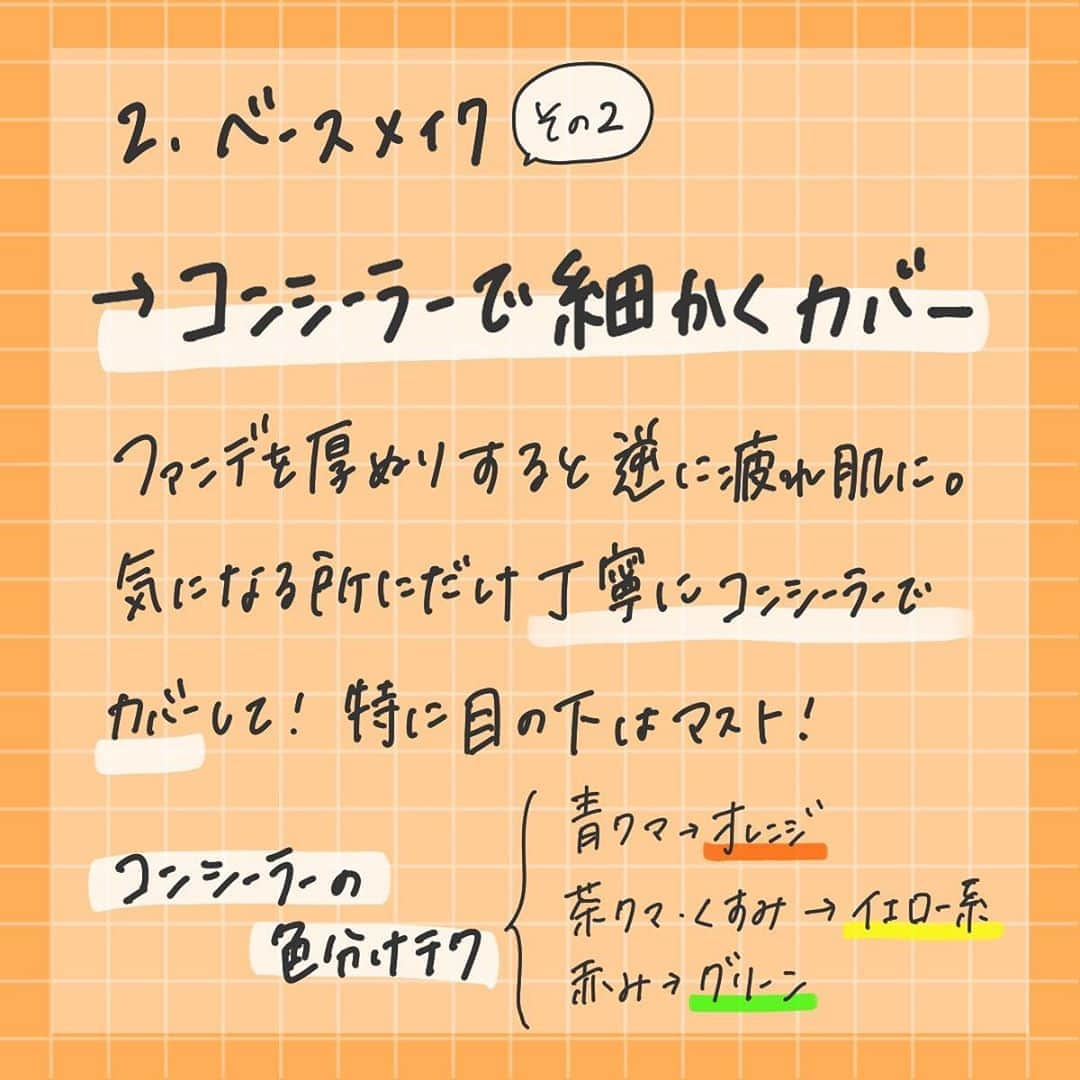 2. ベースメイク その2
→コンシーラーで細かくカバー
ファンデを厚ぬりすると逆に疲れ肌に。
気になる所にだけ丁寧にコンシーラーで
カバーして！特に目の下はマスト！
コンシーラーの
色分けテク
青クマ→オレンジ
茶クマ・くすみ→イエロー系
赤み→グリーン